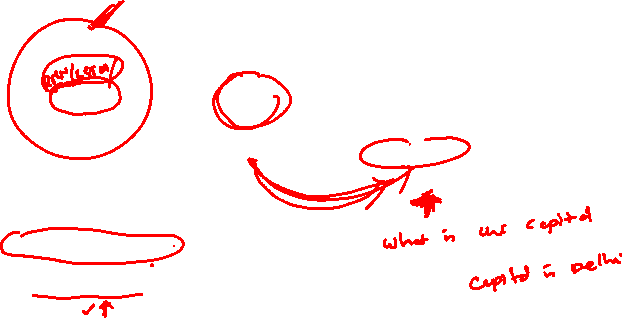 RNN/LSTM
What is the capital
Capital is Delhi